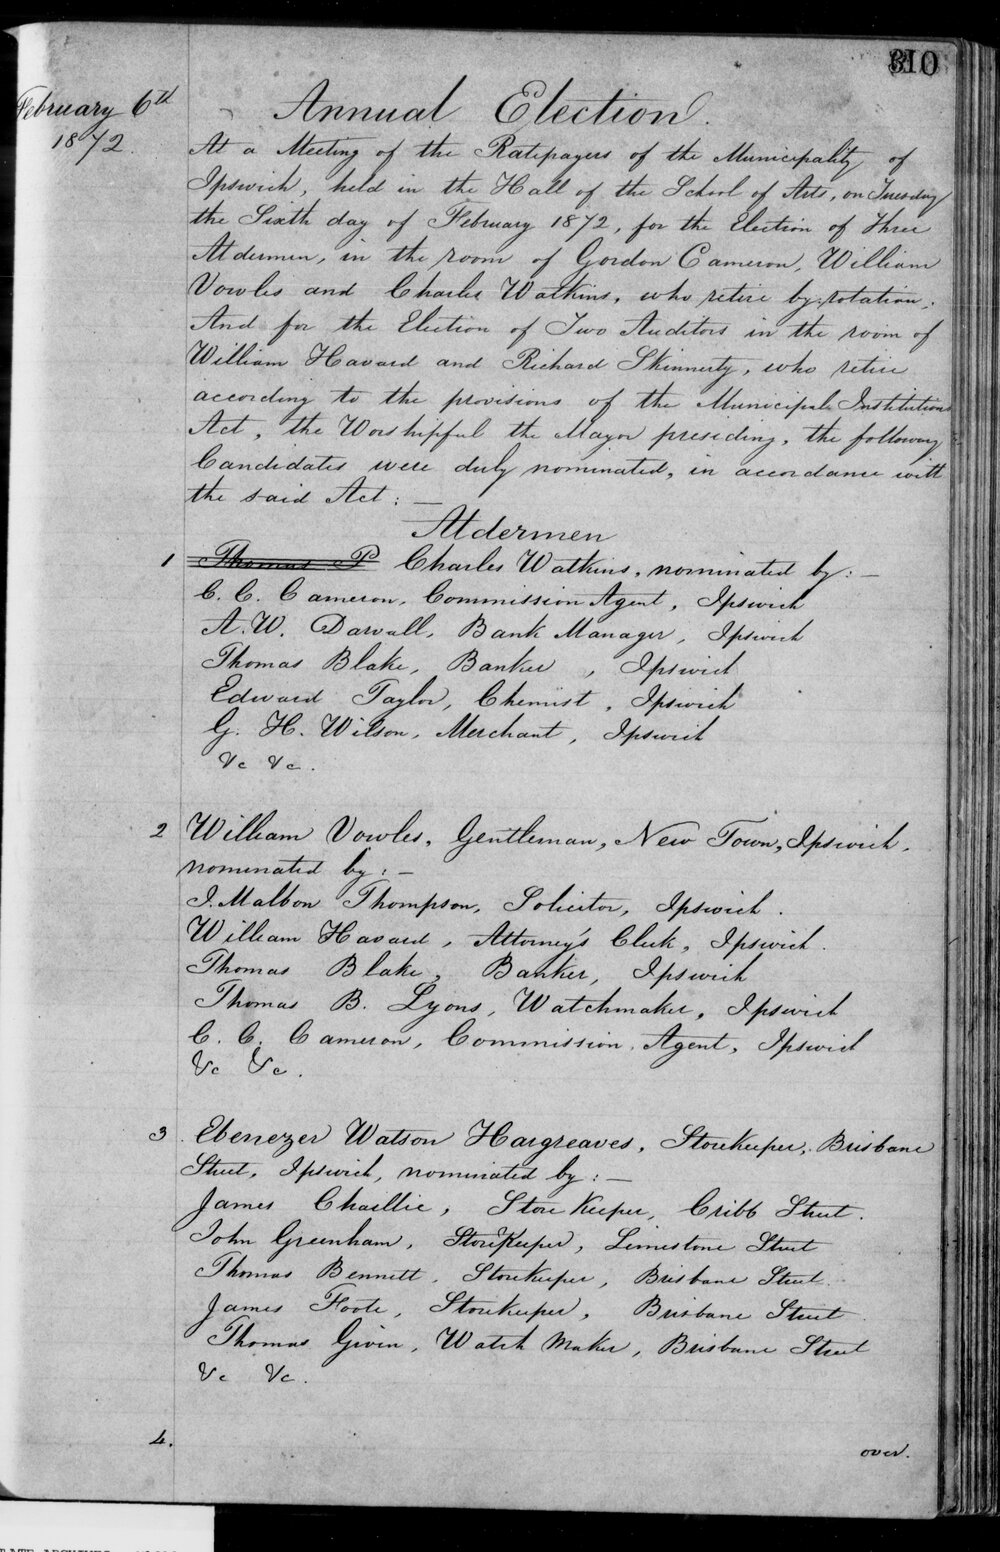 310
February 6th
1872.
Annual Election.
At a Meeting of the Ratepayers of the Municipality of
Ipswich, held in the Hall of the School of Arts, on Tuesday
the Sixth day of February 1872, for the Election of Three
Aldermen, in the room of Gordon Cameron, William
Vowles and Charles Watkins, who retire by rotation.
And for the Election of Two Auditors in the room of
William Havard and Richard Skinnerty, who retire
according to the provisions of the Municipal Institutions
Act, the Worshipful the Mayor presiding, the following
Candidates were duly nominated, in accordance with
the said Act: —
Aldermen
1 Thomas P Charles Watkins, nominated by: —
C. C. Cameron, Commission Agent, Ipswich
A. W. Darvall, Bank Manager, Ipswich
Thomas Blake, Banker, Ipswich
Edward Taylor, Chemist, Ipswich
G. H. Wilson, Merchant, Ipswich
&c &c.
2 William Vowles, Gentleman, New Town, Ipswich.
nominated by: —
J. Malbon Thompson, Solicitor, Ipswich.
William Havard, Attorney's Clerk, Ipswich.
Thomas Blake, Banker, Ipswich
Thomas B. Lyons, Watchmaker, Ipswich
C. C. Cameron, Commission Agent, Ipswich
&c &c.
3 Ebenezer Watson Hargreaves, Storekeeper, Brisbane
Street, Ipswich, nominated by: —
James Chaillie, Store Keeper, Cribb Street.
John Greenham, StoreKeeper, Limestone Street
Thomas Bennett, Storekeeper, Brisbane Street.
James Foote, Storekeeper, Brisbane Street.
Thomas Given, Watch Maker, Brisbane Street
&c &c.
4.
over.